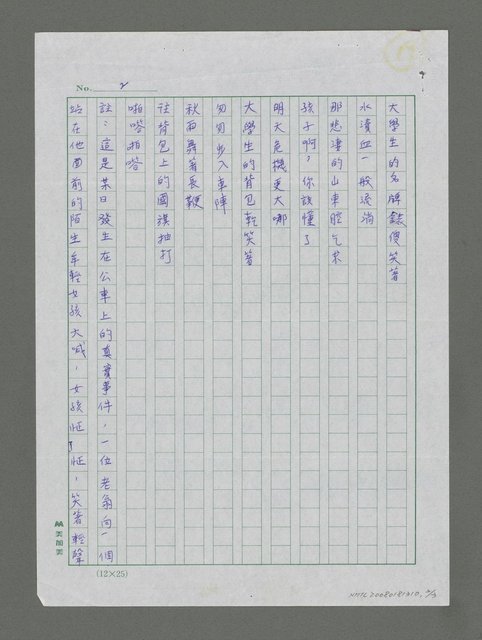 No. 2
大學生的名牌鉄傻笑著
水漬血一般流淌
那悲淒的山東腔气
孩子啊,你該懂了
明天危機更大哪
大學生的背包乾笑著
匆匆步入車陣
秋雨舞著長鞭
往背包上的國旗抽打
啪嗒啪嗒
註:這是某日發生在公車上的真實事件,一位老翁向一個
站在他面前的陌生年輕女孩大喊,女孩怔了怔,笑著輕聲
美加美
(12×25)